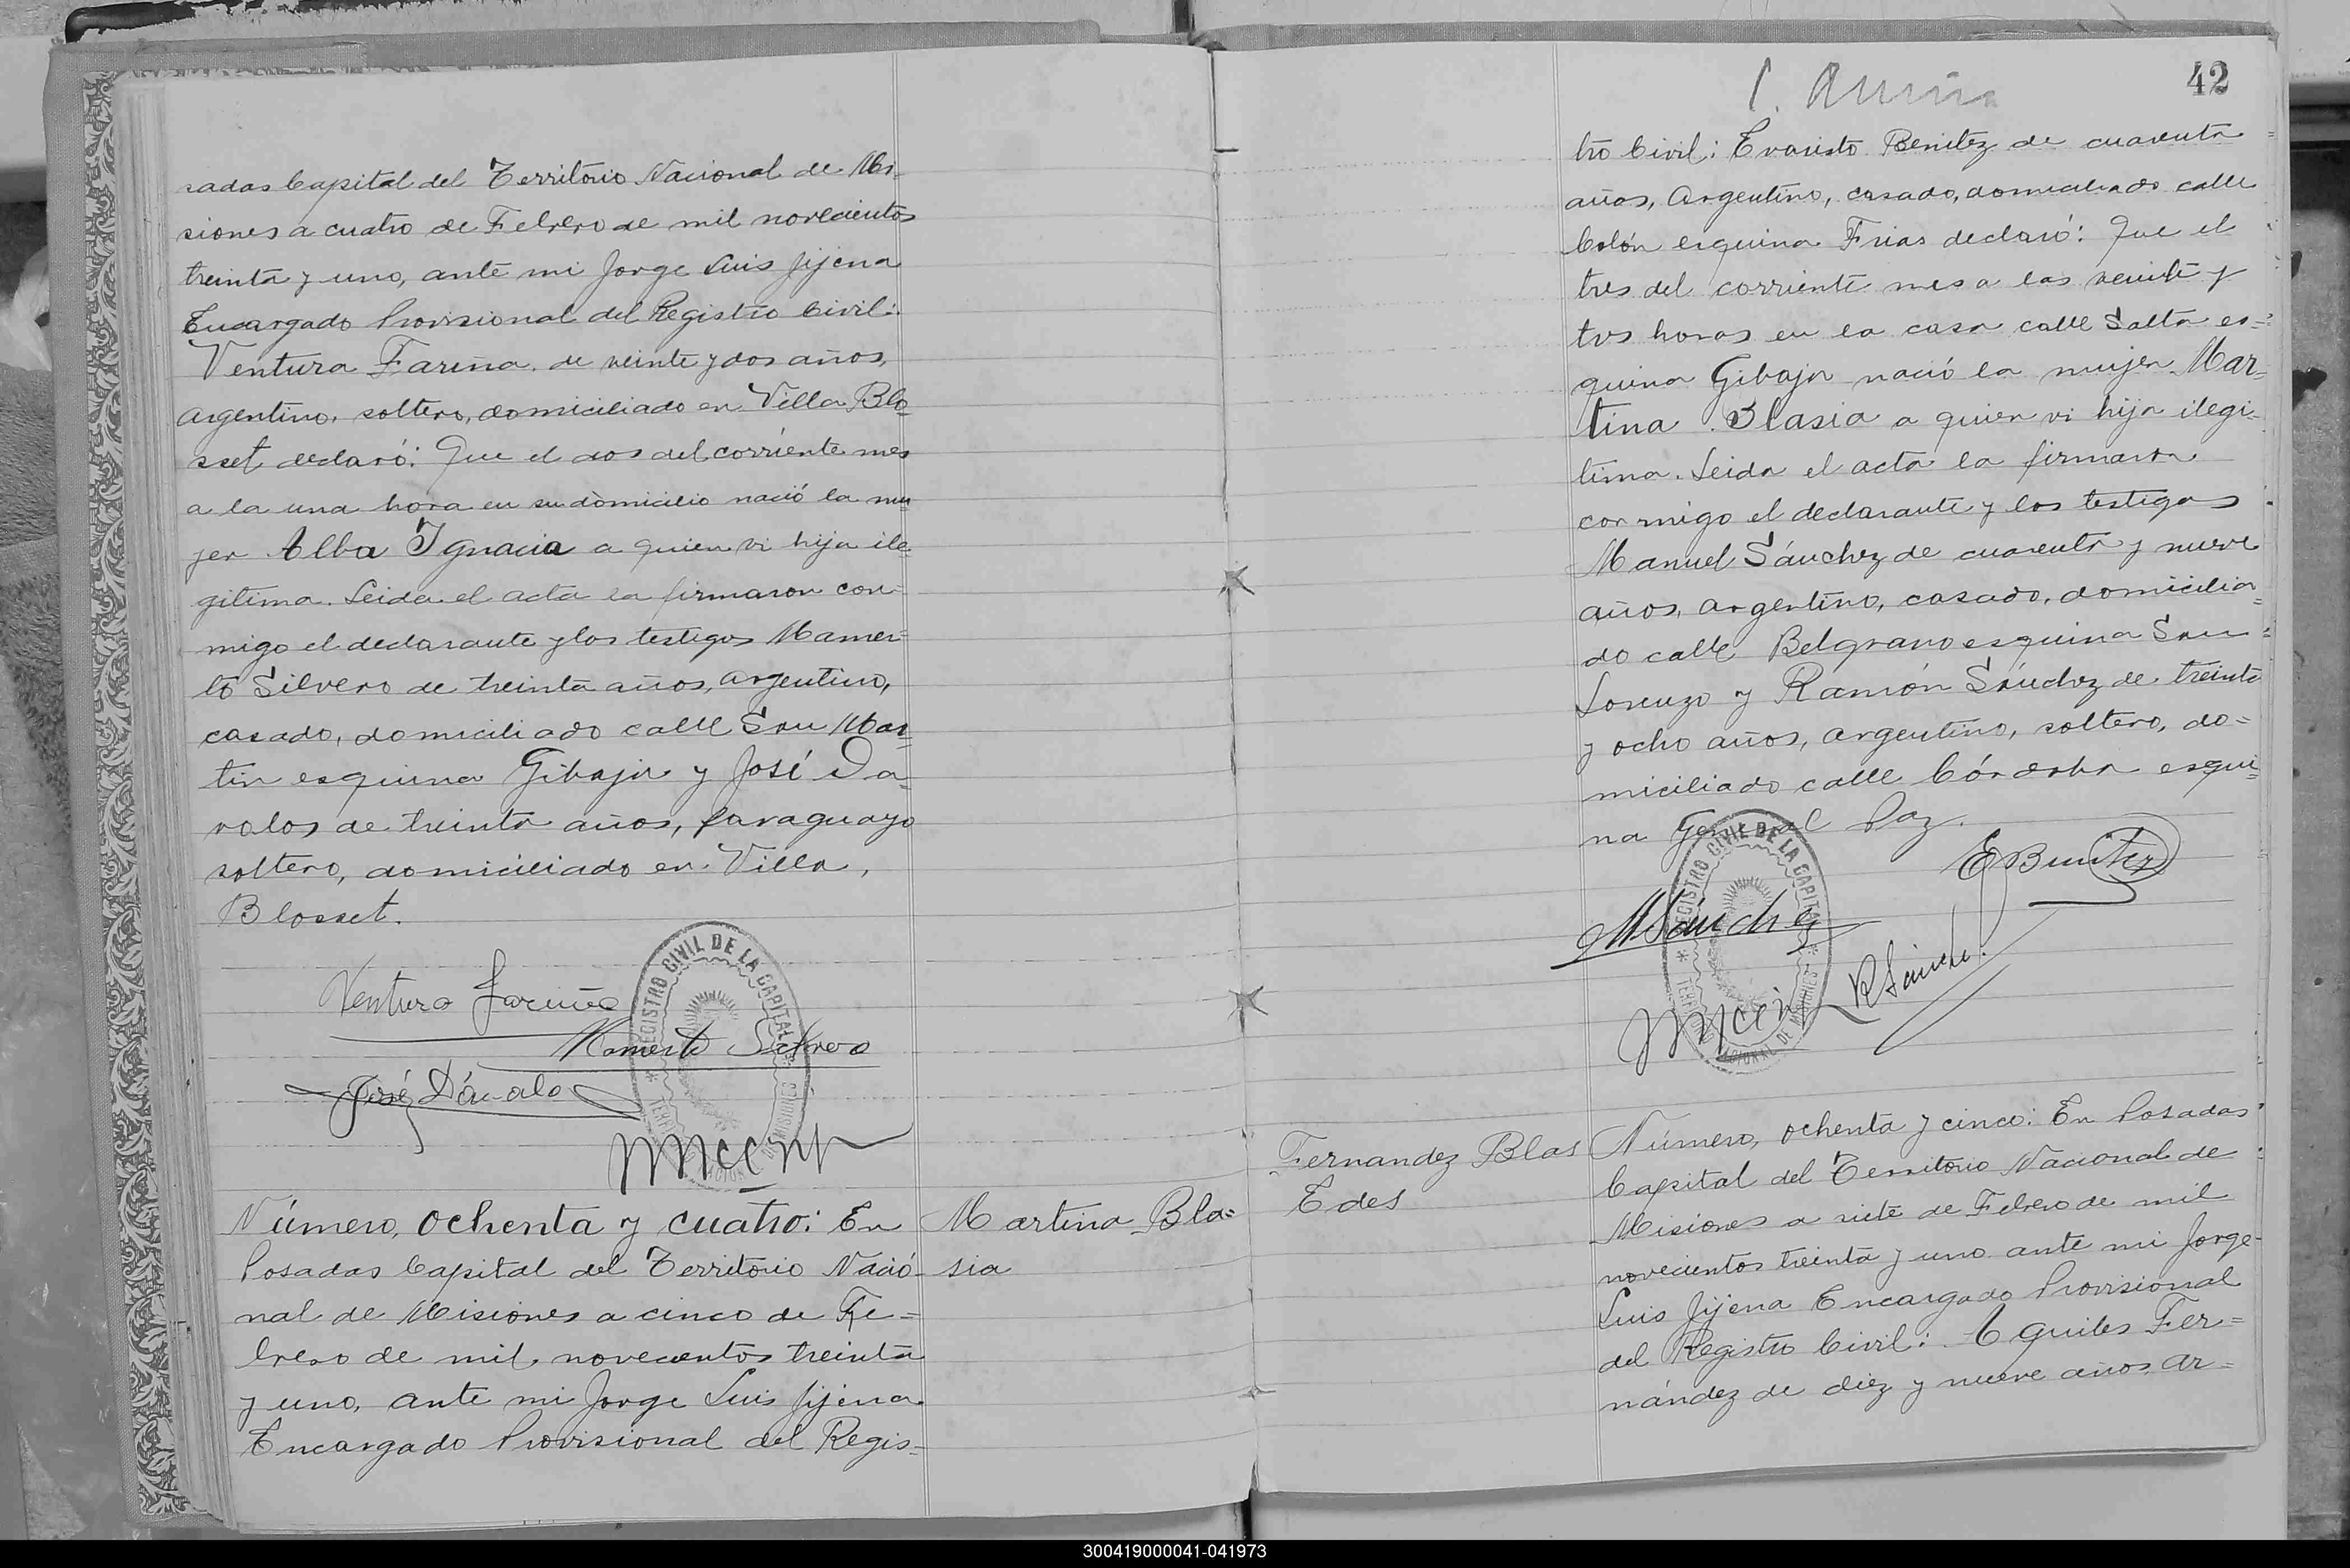 sadas Capital del Territorio Nacional de Mi-
siones a cuatro de Febrero de mil novecientos
treinta y uno, ante mi Jorge Luis Jijena
Encargado Provisional del Registro Civil:
Ventura Fariña de veinte y dos años,
argentino, soltero, domiciliado en Villa Blo-
sset declaró: Que el dos del corriente mes
a la una hora en su domicilio nació la mu
jer Alba Ignacia a quien vi hija ile-
gitima. Leida el acta la firmaron con-
migo el declarante y los testigos Mamer=
to Silvero de treinta años, argentino,
casado, domiciliado calle San Mar=
tin esquina Gibaja y José Da-
valos de treinta años, paraguayo
soltero, domiciliado en Villa
Blosset.
Ventura Fariña
Mamerto Silvero
José Dávalo
REGISTRO CIVIL DE LA CAPITAL
Número, ochenta y cuatro: En
Posadas Capital del Territorio Nació-
nal de Misiones a cinco de Fe=
brero de mil novecientos treinta
y uno, ante mi Jorge Luis Jijena
Encargado Provisional del Regis=
Martina Bla=
sia
42
tro Civil: Evaristo Benitez de cuarenta
años, Argentino, casado, domiciliado calle
Colón esquina Frias declaró: Que el
tres del corriente mes a las veinte y
tres horas en la casa calle Salta es=
quina Gibaja nació la mujer Mar=
tina Blasia a quien vi hija ilegi-
tima. Leida el acta la firmaron
conmigo el declarante y los testigos
Manuel Sánchez de cuarenta y nueve
años, argentino, casado, domicilia=
do calle Belgrano esquina San
Lorenzo y Ramón Sánchez de treinta
y ocho años, argentino, soltero, do=
miciliado calle Córdoba esqui=
na General Paz.
E Benitez
M Sánchez
R Sánchez
REGISTRO CIVIL DE LA CAPITAL
TERRITORIO NACIONAL DE MISIONES
Fernandez Blas
Edes
Número, ochenta y cinco: En Posadas
Capital del Territorio Nacional de
Misiones a siete de Febrero de mil
novecientos treinta y uno ante mi Jorge
Luis Jijena Encargado Provisional
del Registro Civil: Aquiles Fer=
nández de diez y nueve años, ar=
300419000041-041973